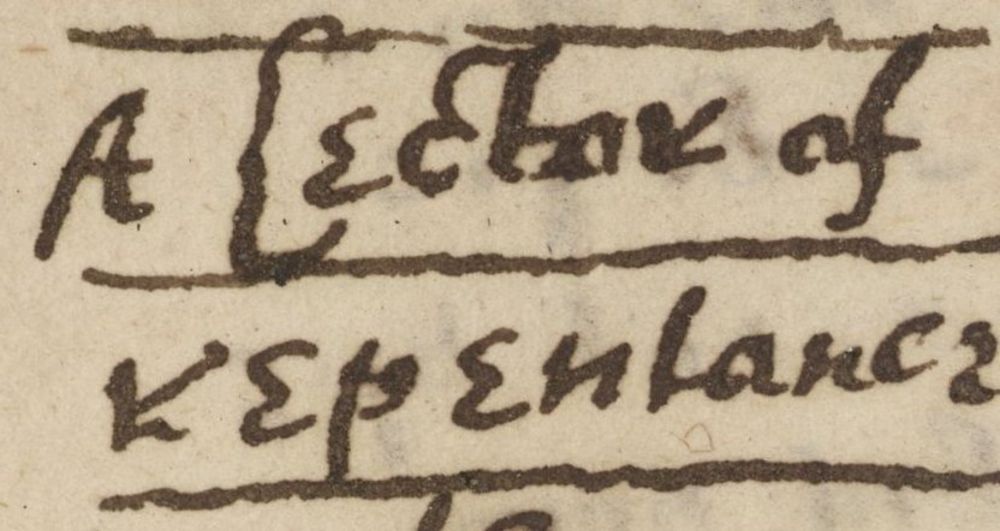 A Lector of
repentance